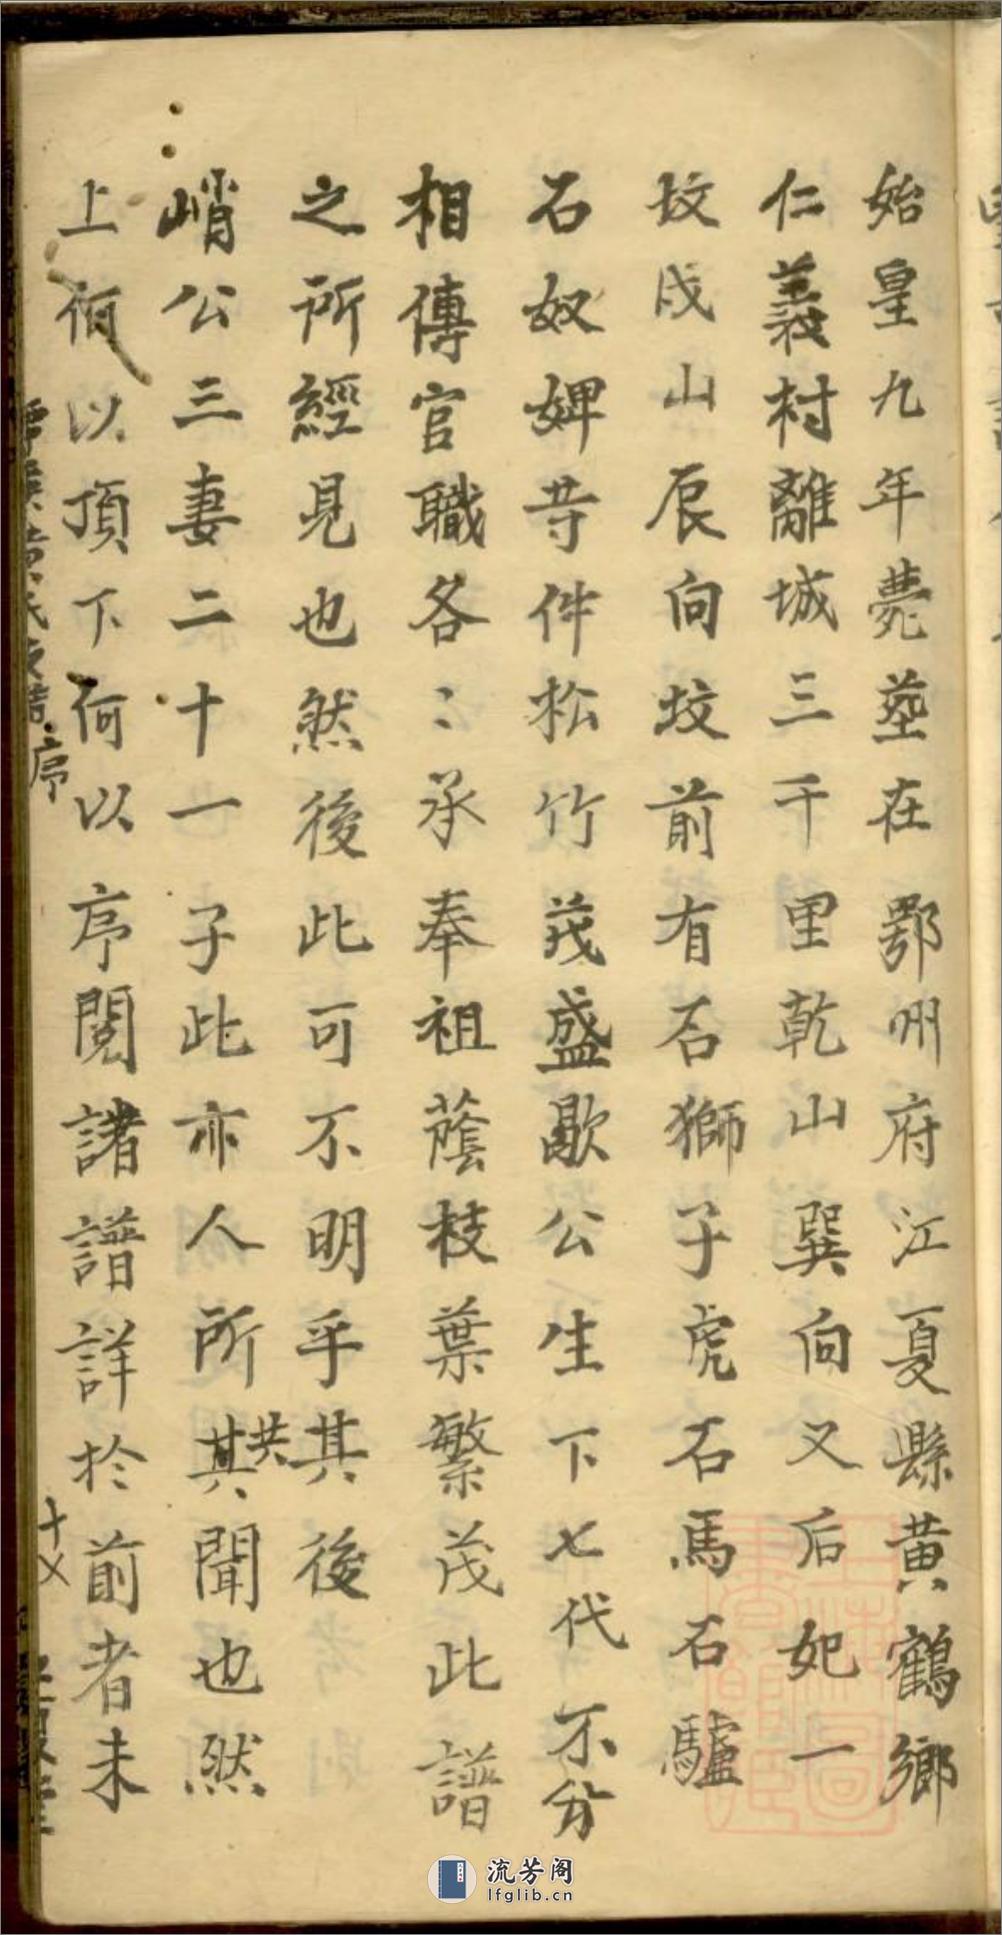 始皇九年薨塟在鄂州府江夏縣黄鶴鄉
仁義村離城三千里乾山巽向又后妃一
坟戌山辰向坟前有石獅子虎石馬石驢
石奴婢等件松竹茂盛歇公生下七代不分
相傳官職各〻承奉祖蔭枝葉繁茂此譜
之所經見也然後此可不明乎其後
峭公三妻二十一子此亦人所其共聞也然
上何以頂下何以序閱諸譜詳於前者未
序
十乂
流芳阁
lfglib.cn